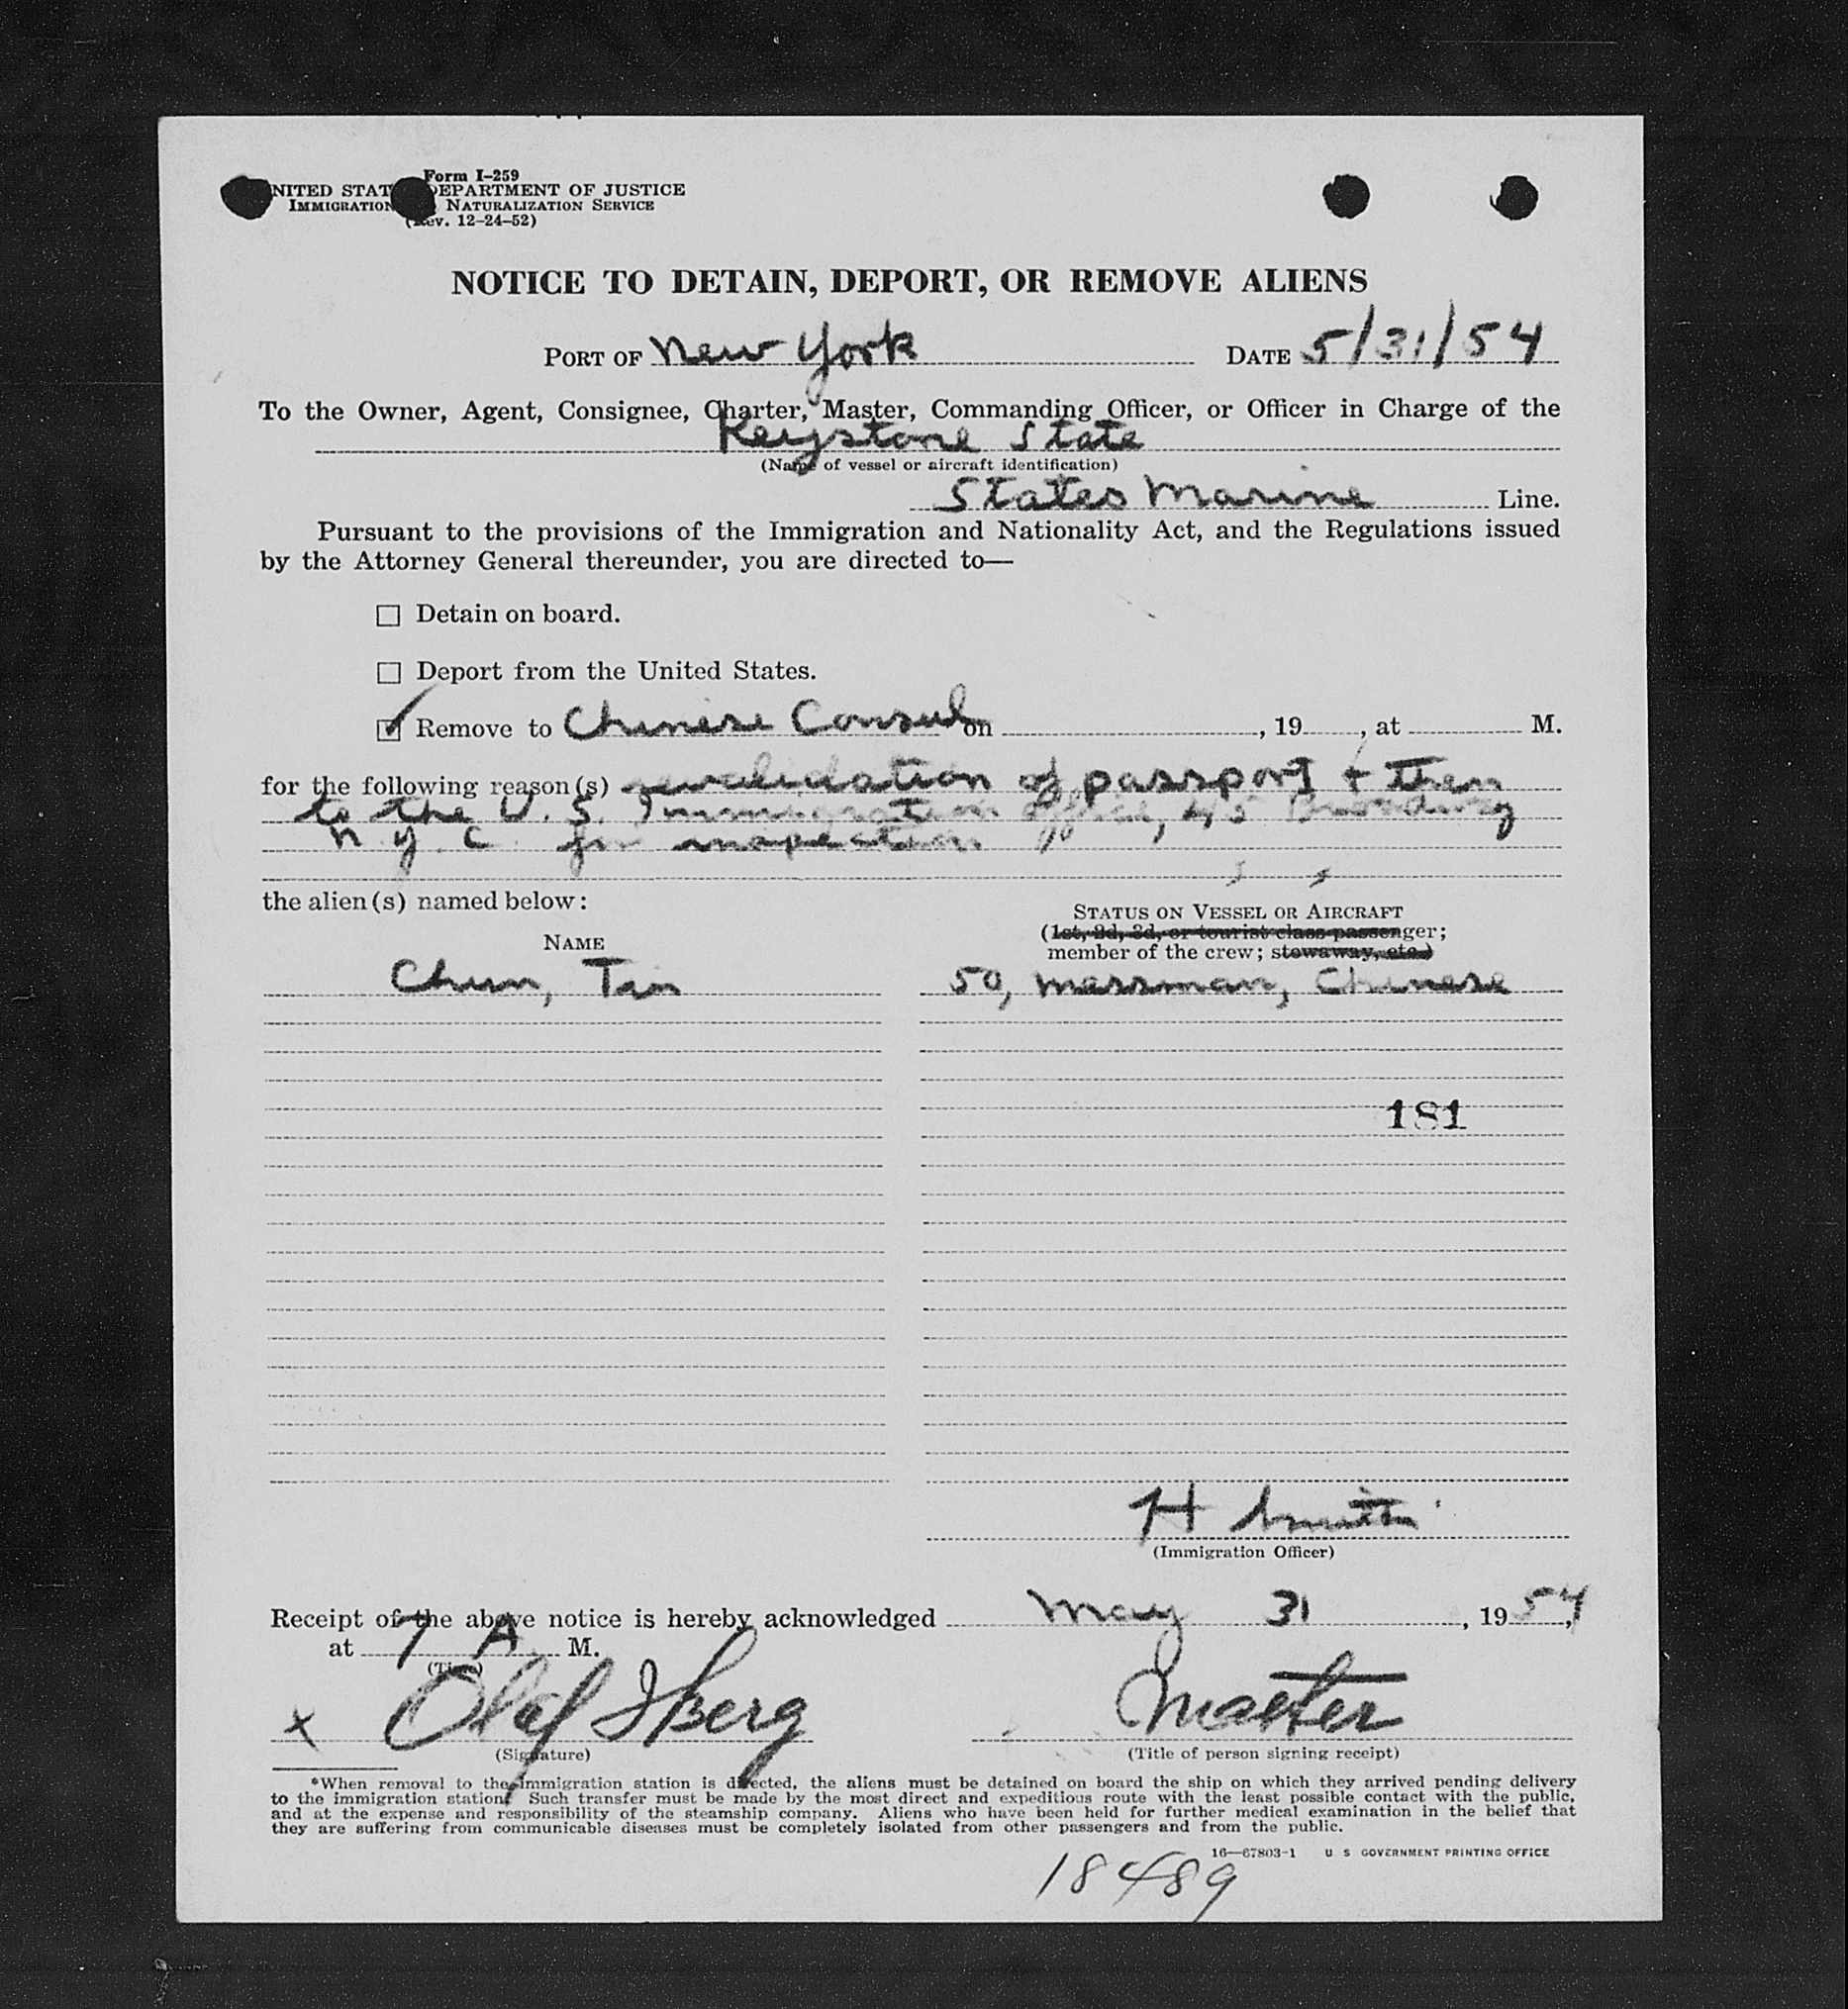 Form I-259
NITED STAT DEPARTMENT OF JUSTICE
IMMIGRATION NATURALIZATION SERVICE
(Rev. 12-24-52)
NOTICE TO DETAIN, DEPORT, OR REMOVE ALIENS
PORT OF New York DATE 5/31/54
To the Owner, Agent, Consignee, Charter, Master, Commanding Officer, or Officer in Charge of the
Keystone State
(Name of vessel or aircraft identification)
States Marine Line.
Pursuant to the provisions of the Immigration and Nationality Act, and the Regulations issued
by the Attorney General thereunder, you are directed to—
☐ Detain on board.
☐ Deport from the United States.
☑ Remove to Chinese Consul on , 19 , at M.
for the following reason(s) revalidation of passport + then
to the U. S. Immigration office, 45 Broadway
N. Y. C. for inspection
the alien(s) named below:
STATUS ON VESSEL OR AIRCRAFT
(1st, 2d, 3d, or tourist class passenger;
NAME
member of the crew; stowaway, etc.)
Chun, Tin 50, messman, Chinese
181
H
(Immigration Officer)
Receipt of the above notice is hereby acknowledged May 31, 1954,
at 7 A. M.
(Time)
x Olaf Iberg Master
(Signature) (Title of person signing receipt)
*When removal to the immigration station is directed, the aliens must be detained on board the ship on which they arrived pending delivery
to the immigration station. Such transfer must be made by the most direct and expeditious route with the least possible contact with the public,
and at the expense and responsibility of the steamship company. Aliens who have been held for further medical examination in the belief that
they are suffering from communicable diseases must be completely isolated from other passengers and from the public.
16—67803-1 U S GOVERNMENT PRINTING OFFICE
18489